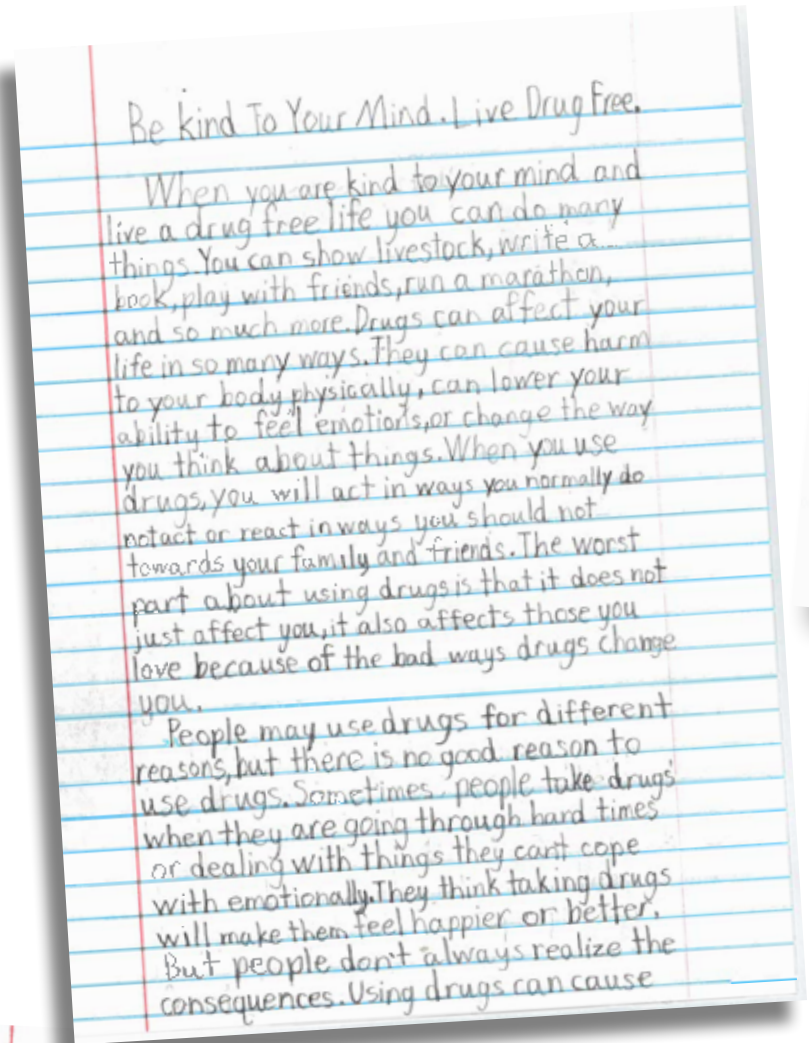 Be kind To Your Mind. Live Drug Free.
When you are kind to your mind and
live a drug free life you can do many
things. You can show livestock, write a
book, play with friends, run a marathon,
and so much more. Drugs can affect your
life in so many ways. They can cause harm
to your body physically, can lower your
ability to feel emotions, or change the way
you think about things. When you use
drugs, you will act in ways you normally do
not act or react in ways you should not
towards your family and friends. The worst
part about using drugs is that it does not
just affect you, it also affects those you
love because of the bad ways drugs change
you.
People may use drugs for different
reasons, but there is no good reason to
use drugs. Sometimes people take drugs
when they are going through hard times
or dealing with things they can't cope
with emotionally. They think taking drugs
will make them feel happier or better.
But people don't always realize the
consequences. Using drugs can cause